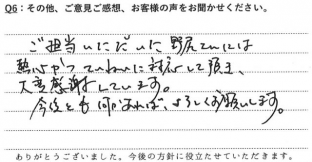 Q6：その他、ご意見ご感想、お客様の声をお聞かせください。
ご担当いただいた野尻さんには
熱心かつていねいに対応して頂き、
大変感謝しています。
今後とも何かあれば、よろしくお願いします。
ありがとうございました。今後の方針に役立たせていただきます。